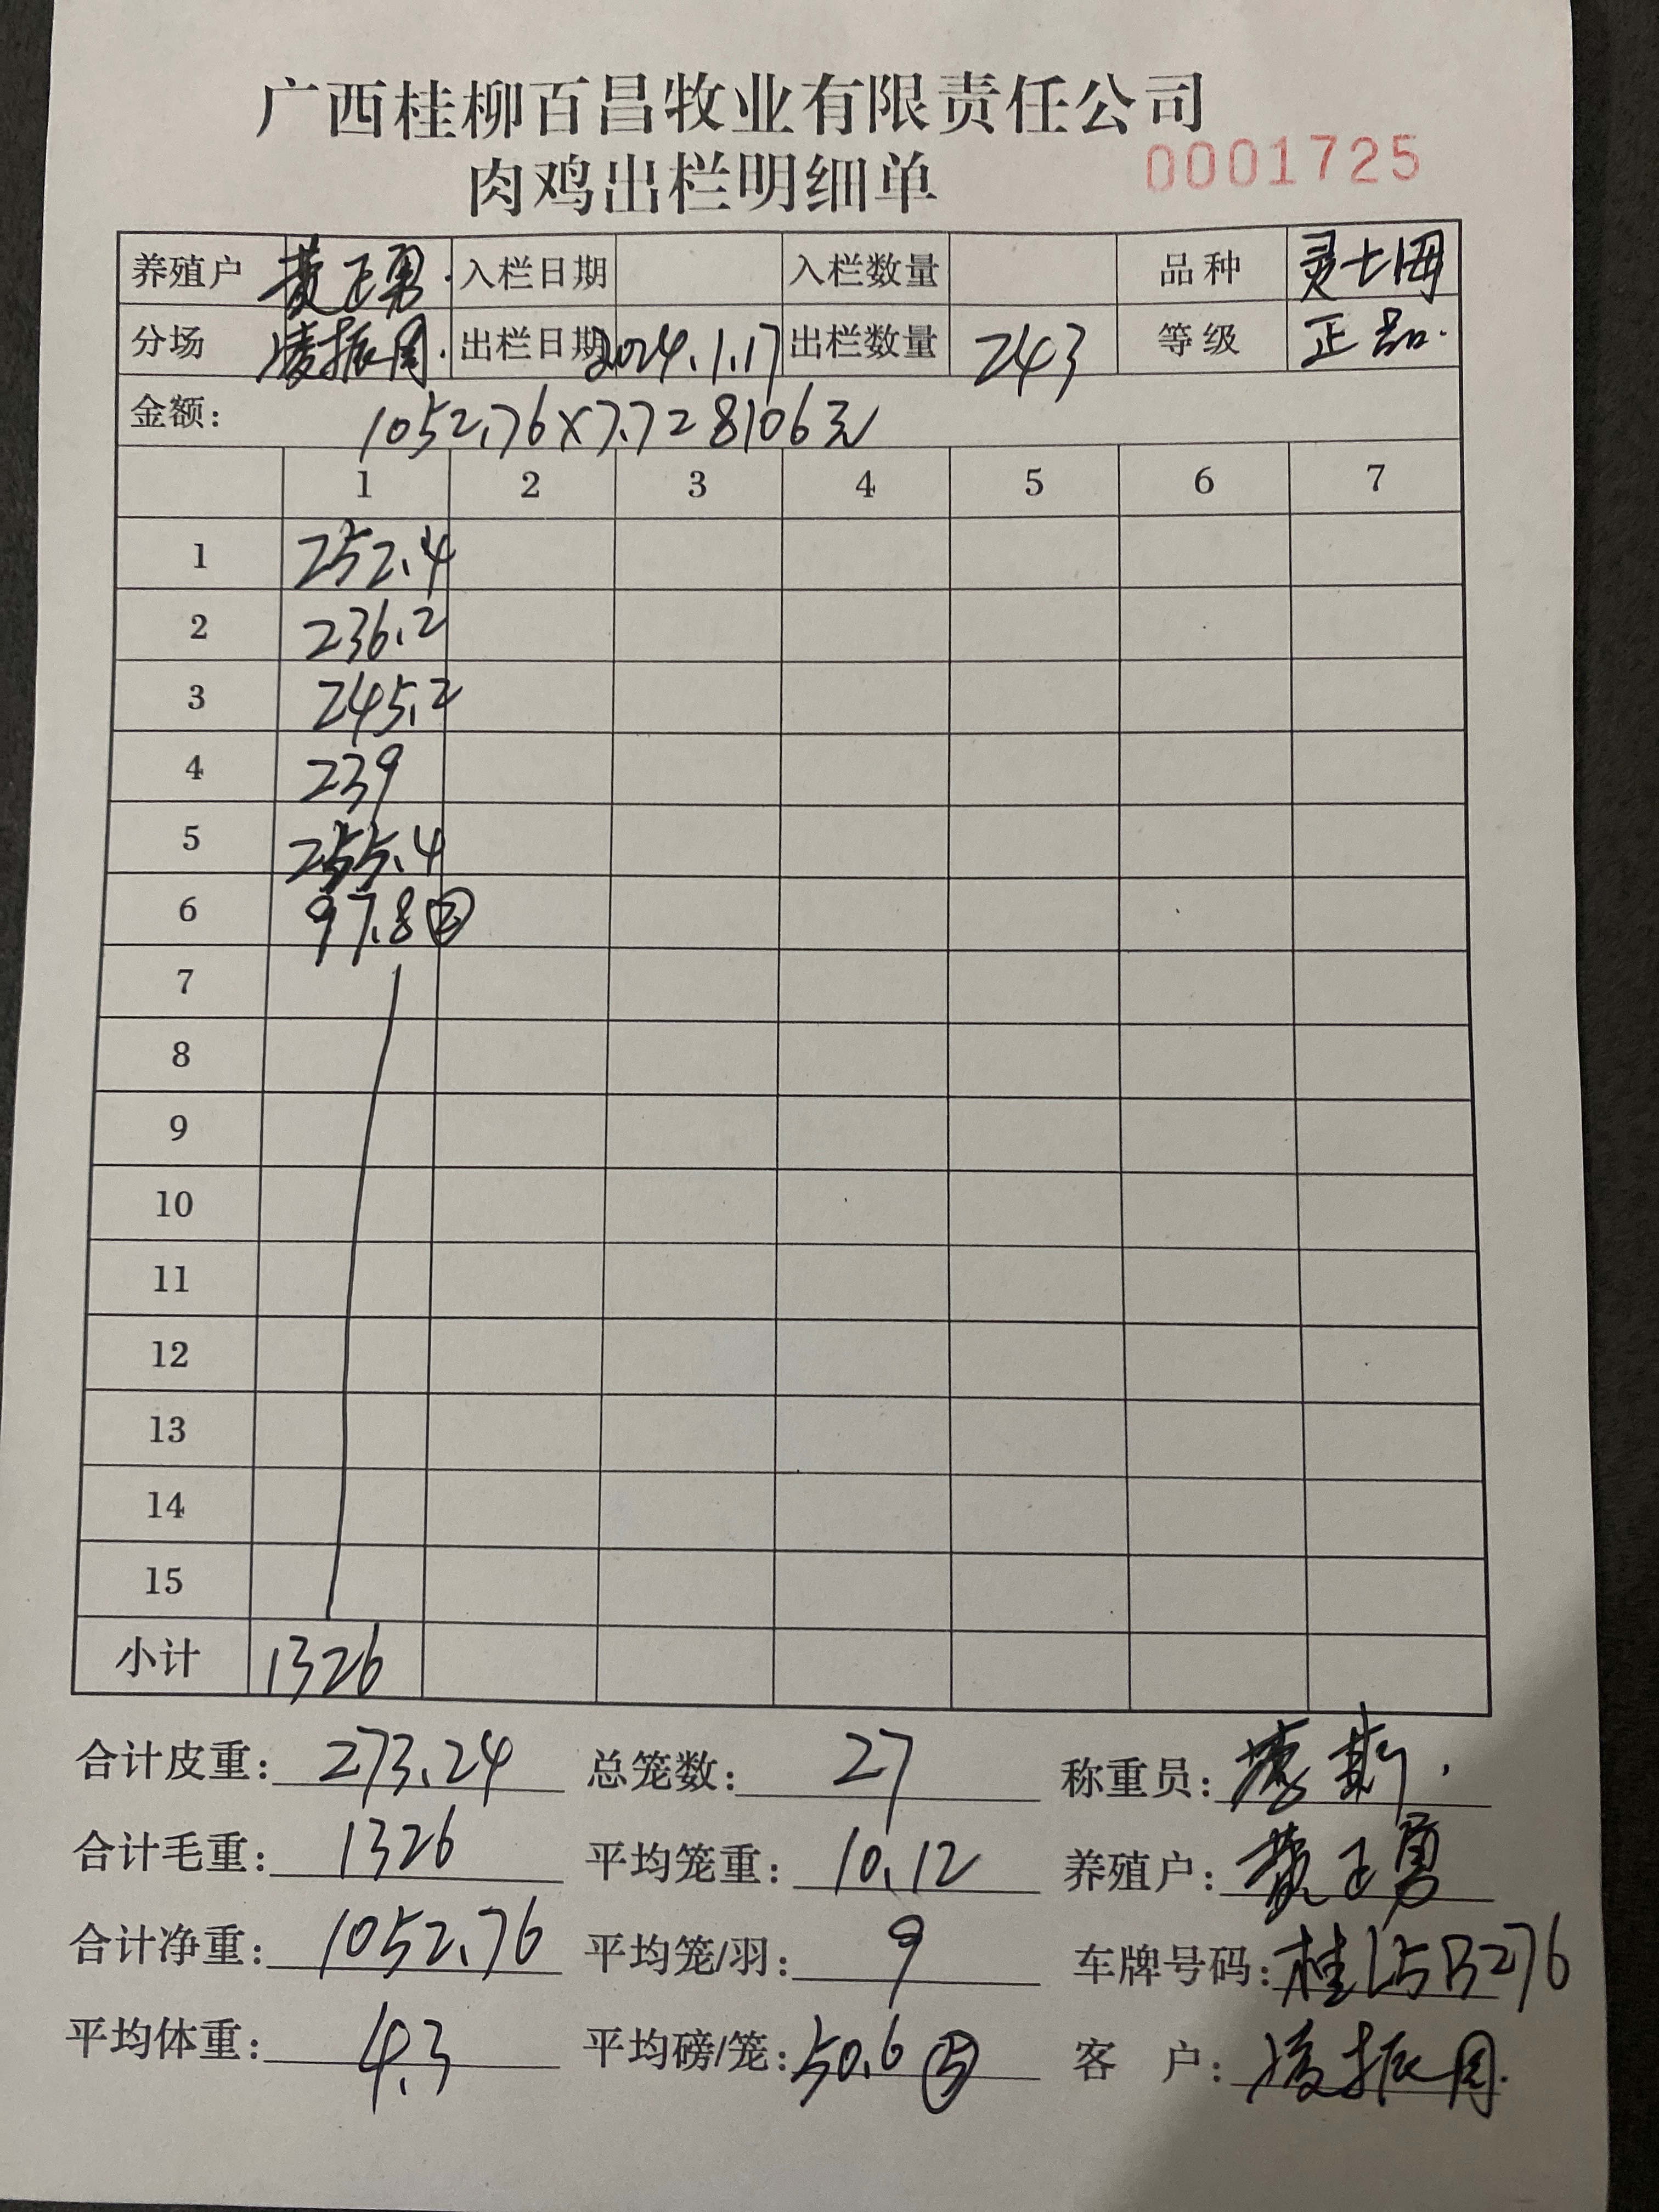 广西桂柳百昌牧业有限责任公司
肉鸡出栏明细单 0001725
养殖户 黄正勇. 入栏日期 入栏数量 品种 灵土
分场 凌振周. 出栏日期 2024.1.17 出栏数量 243 等级 正品.
金额: 1052.76×7.7 28106元
1 2 3 4 5 6 7
1 252.4
2 236.2
3 245.2
4 239
5 255.4
6 97.8 ②
7
8
9
10
11
12
13
14
15
小计 1326
合计皮重: 273.24 总笼数: 27 称重员:
合计毛重: 1326 平均笼重: 10.12 养殖户: 黄正勇
合计净重: 1052.76 平均笼/羽: 9 车牌号码: 桂L5B276
平均体重: 4.3 平均磅/笼: 50.6 ⑤ 客 户: 凌振周.